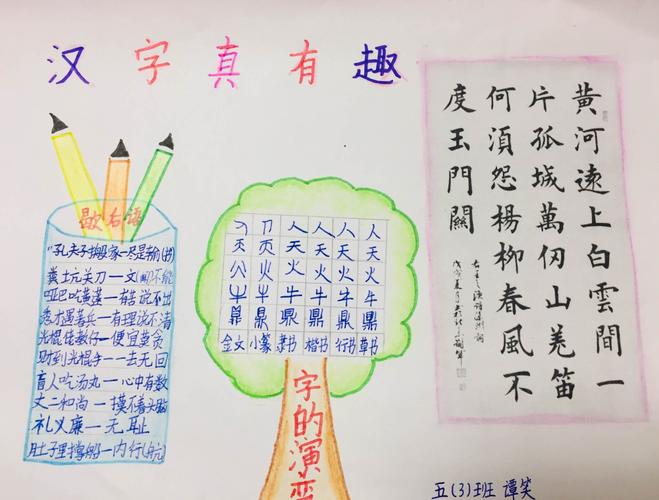 汉字真有趣
歇后语
"孔夫子搬家—尽是输(书)
粪土坑关刀—文(闻)不能
哑巴吃黄莲—有苦说不出
秀才遇着兵—有理说不清
光棍佬教仔—便宜莫贪
财到光棍手—一去无回
盲人吃汤丸—心中有数
丈二和尚—摸不着头脑
礼义廉—无耻
肚子里撑船—内行(航)
人 人 人 人
天 天 天 天
火 火 火 火 火
牛 牛 牛 牛
鼎 鼎 鼎 鼎 鼎
金文 小篆 隶书 楷书 行书 草书
字的演变
黃河遠上白雲間一
片孤城萬仞山羌笛
何須怨楊柳春風不
度玉門關
五(3)班 谭笑